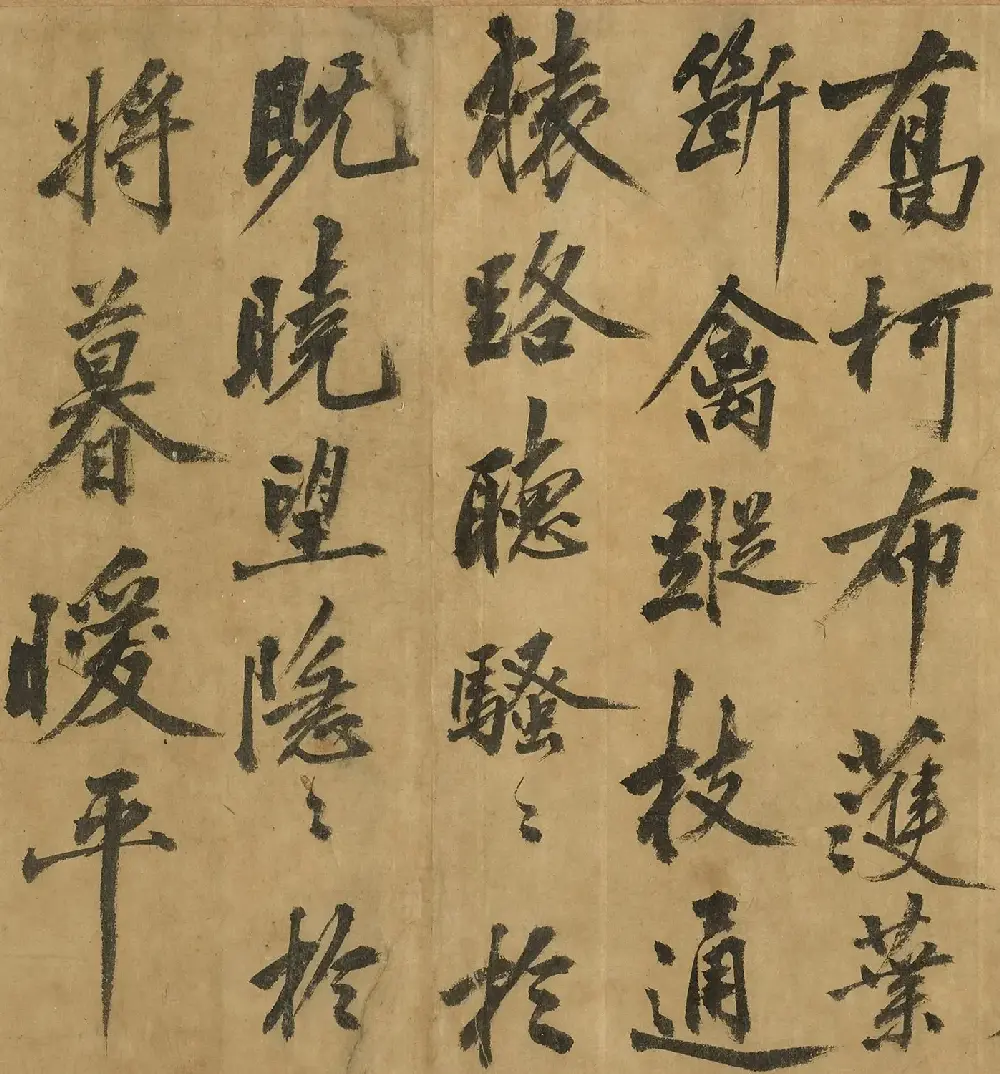 喬柯布濩葉
斷禽蹤枝通
猿路聽騷〻於
既曉望隱〻於
將暮曖平